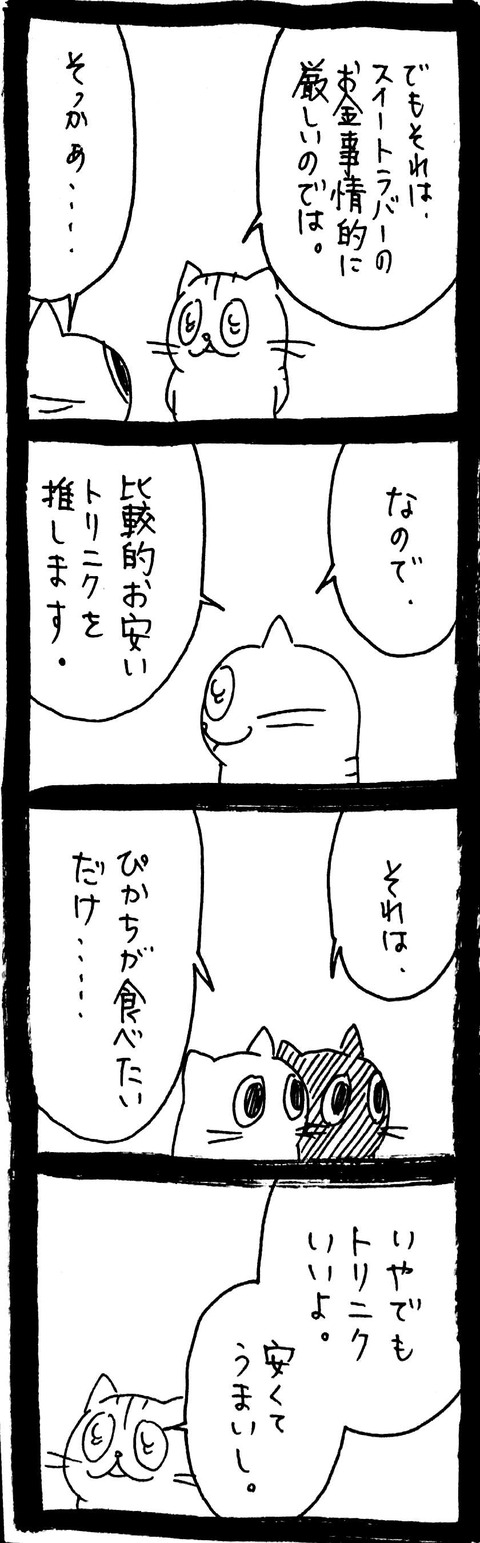 でもそれは、
スイートラバーの
お金事情的に
厳しいのでは。
そっかぁ・・・・
なので、
比較的お安い
トリニクを
推します。
それは、
ぴかちが食べたい
だけ・・・・・
いやでも
トリニク
いいよ。
安くて
うまいし。